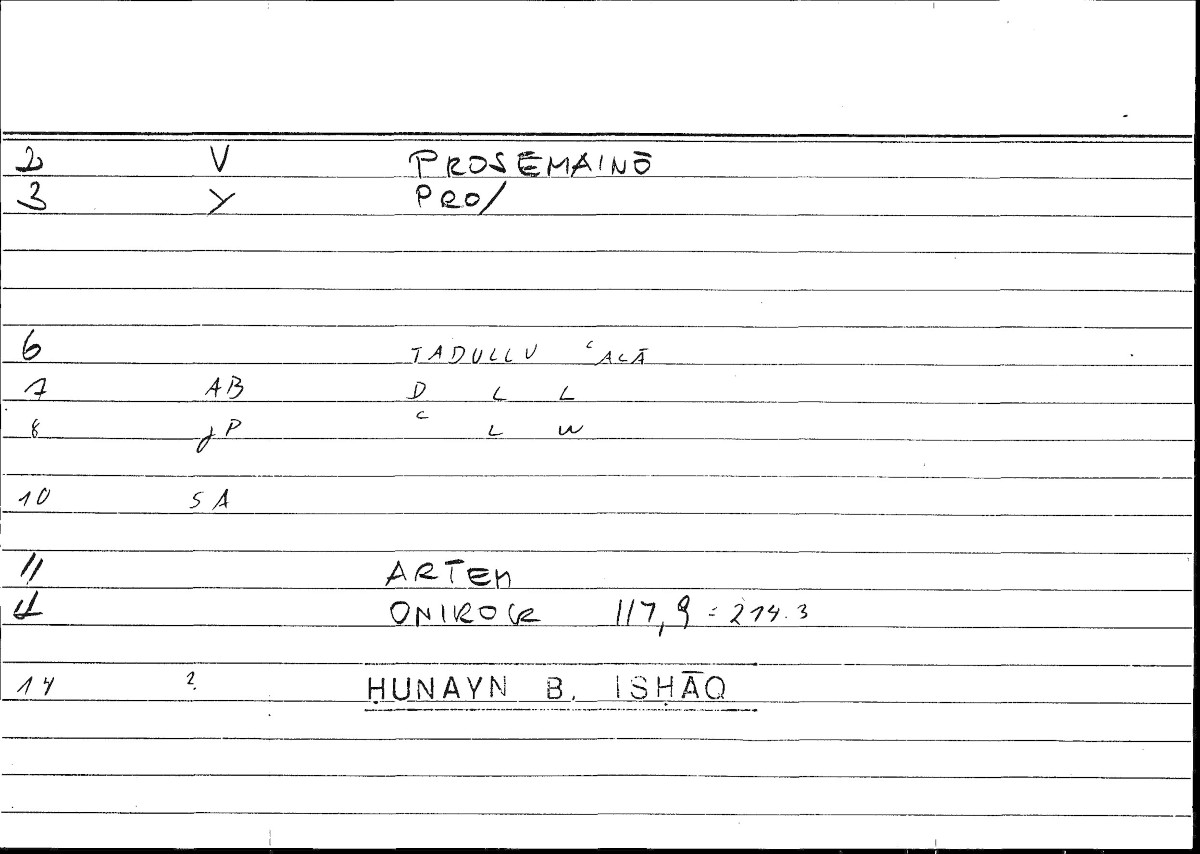 2 V PROSEMAINŌ
3 Y PRO/
6 TADULLU ʿALĀ
7 AB D L L
8 jP ʿ L W
10 SA
11 ARTEM
ONIROCR 117,9 = 214.3
14 ? ḤUNAYN B. ISḤĀQ